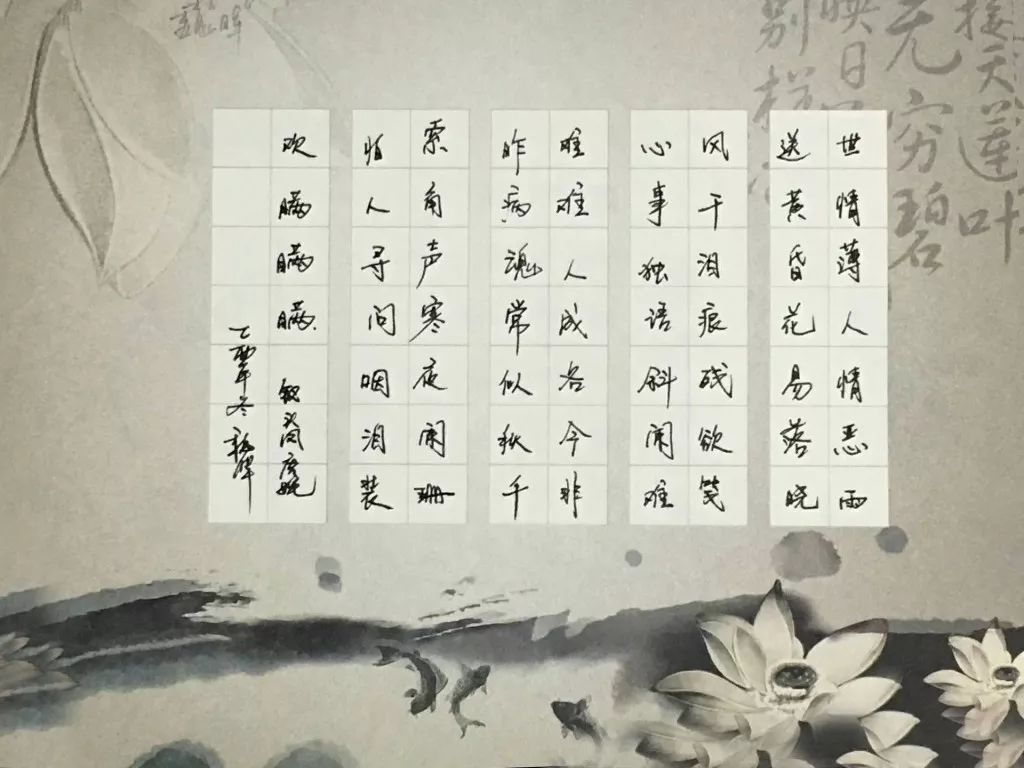 世情薄人情恶雨
送黄昏花易落晓
风干泪痕残欲笺
心事独语斜阑难
难难人成各今非
昨病魂常似秋千
索角声寒夜阑珊
怕人寻问咽泪装
欢瞒瞒瞒 钗头凤唐婉
冬
接天莲叶
无穷碧
映日
别样